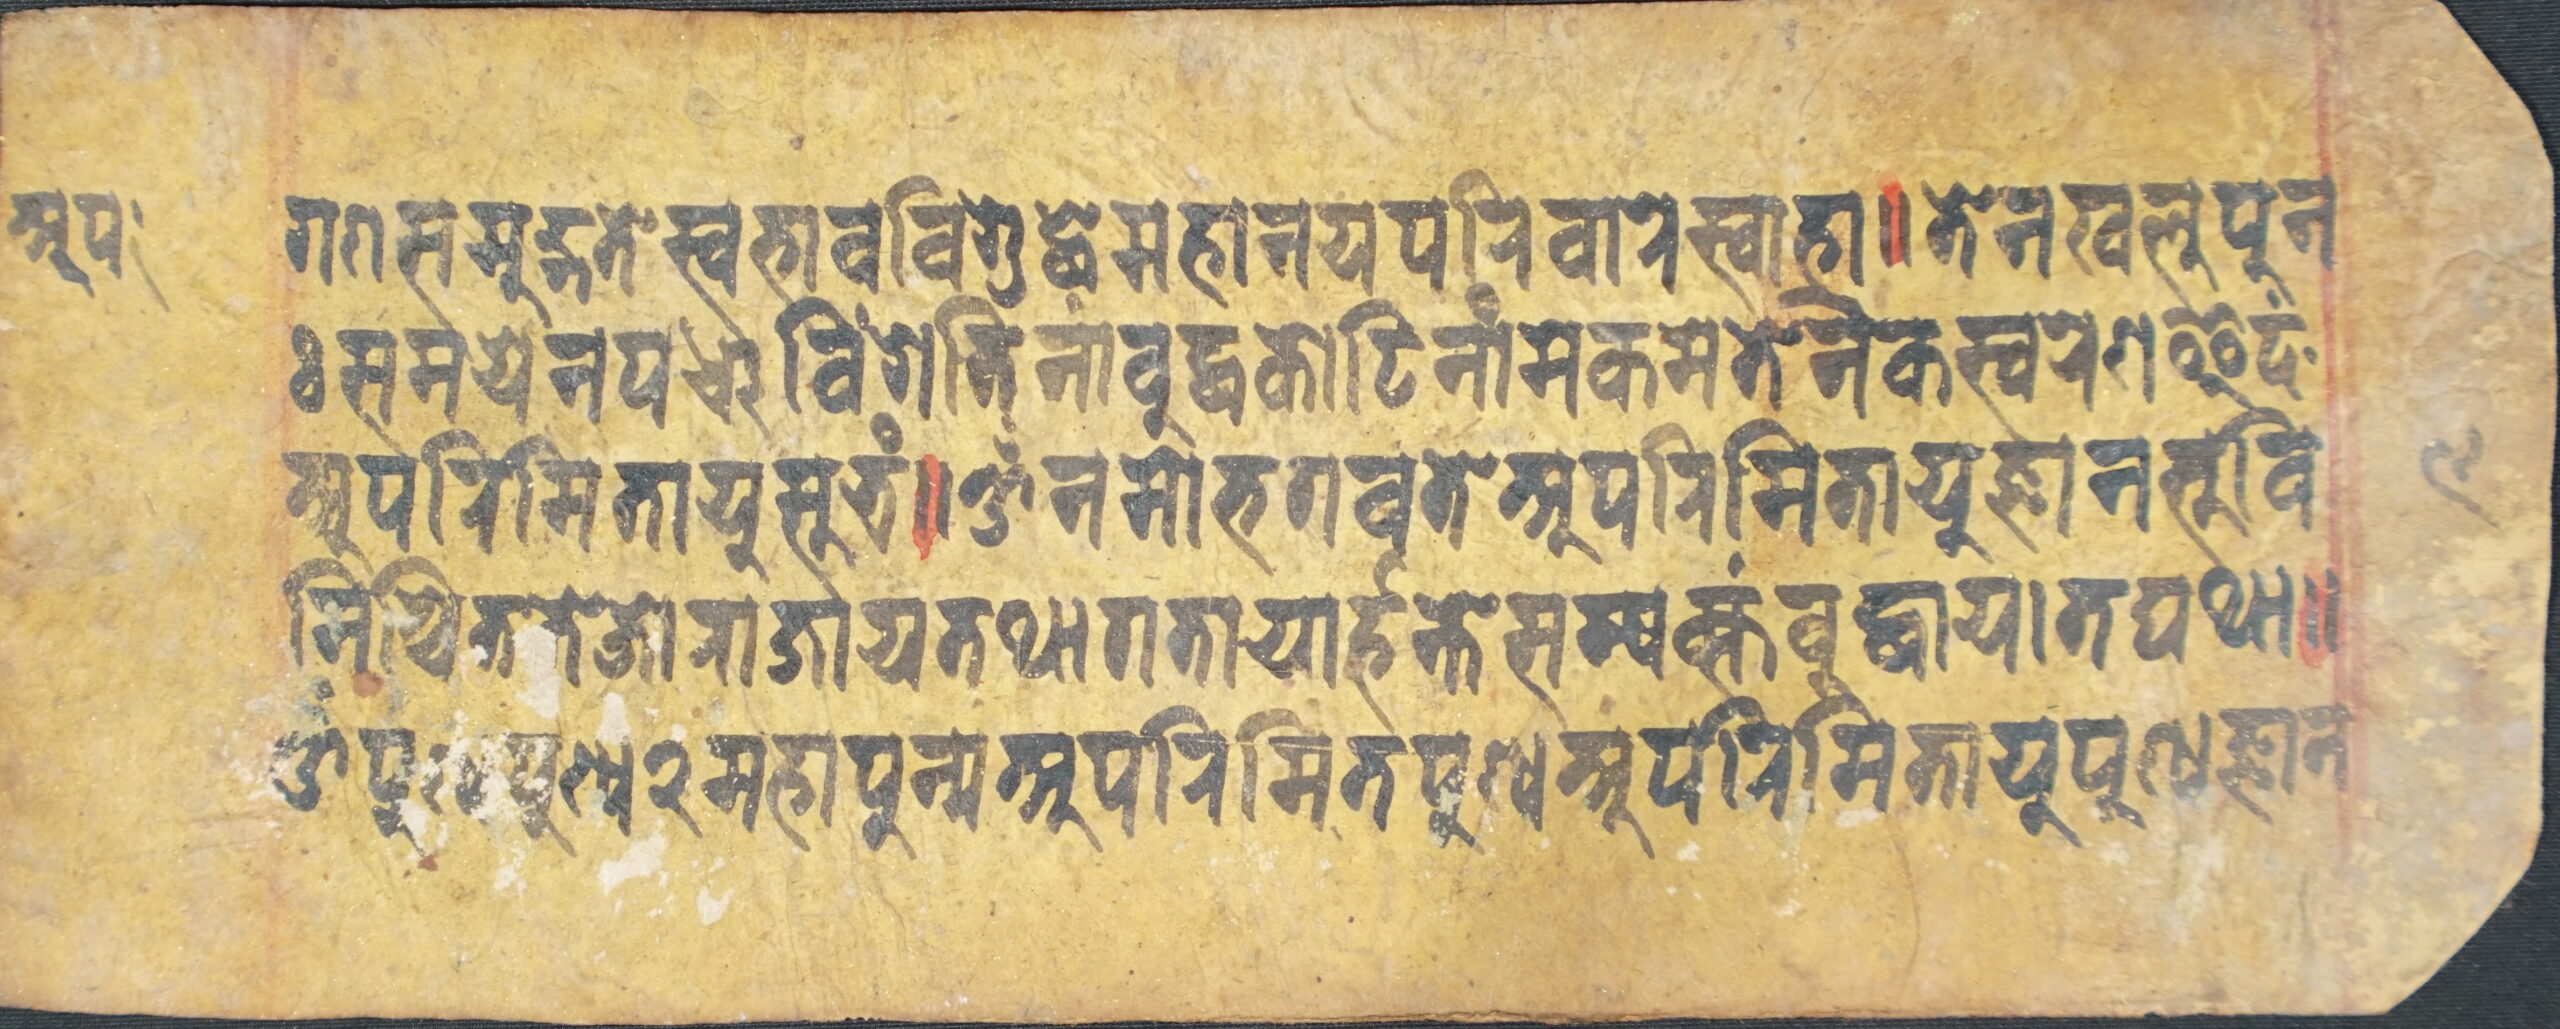 अपः
गगसमुद्गते स्वभावविशुद्धे महानयपरिवारे स्वाहा॥ तेन खलु पुन
ः समयेन पञ्चविंशतिनां बुद्धकोटिनांमेकमतेनैकस्वरेण इदं
अपरिमितायुसुत्रं॥ ॐ नमो भगवते अपरिमितायुज्ञानसुवि
निश्चिततेजोराजाय तथागतायार्हते सम्यक्संबुद्धाय। तद्यथा॥
ॐ पुण्यपुण्य२महापुन्य अपरिमितपुण्य अपरिमितायुपुण्यज्ञान
९